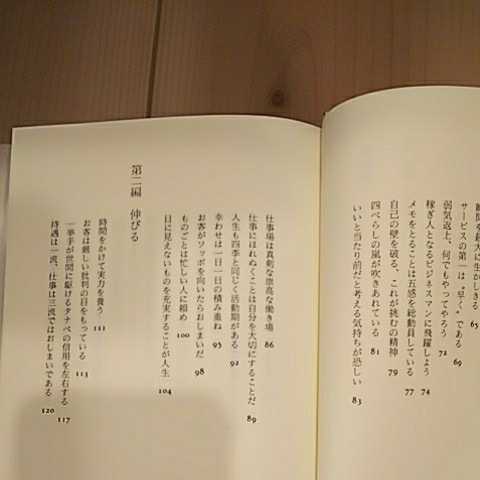 瞬間を最大に生かしきる 65
サービスの第一は“早く”である 69
弱気返上、何でもやってやろう 72
稼ぎ人となるビジネスマンに飛躍しよう 74
メモをとることは五感を総動員している 77
自己の壁を破る、これが挑むの精神 79
四べらしの嵐が吹きあれている 81
いいと当り前だと考える気持ちが恐しい 83
仕事場は真剣な崇高な働き場 86
仕事にほれぬくことは自分を大切にすることだ 89
人生も四季と同じく活動期がある 92
幸わせは一日一日の積み重ね 95
お客がソッポを向いたらおしまいだ 98
ものごとは忙しい人に頼め 100
目に見えないものを充実することが人生 104
第二編 伸びる
時間をかけて実力を養う 111
お客は厳しい批判の目をもっている 113
一挙手が世間に駆けるタナベの信用を左右する 117
待遇は一流、仕事は三流ではおしまいである 120